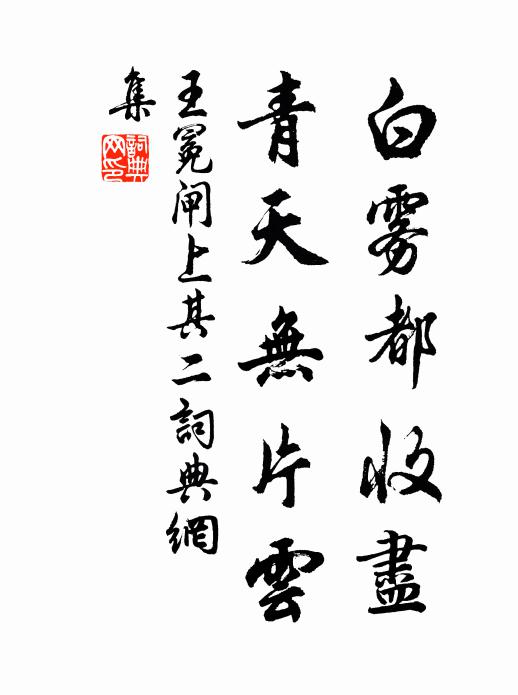 白雾都收盡
青天無片雲
王冕闸上其二詞典網
集
詞典
网印